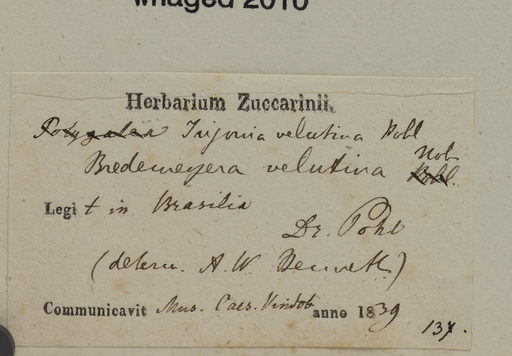 Imaged 2010
Herbarium Zuccarinii.
Polygalea Trigonia velutina Pohl
Bredemeyera velutina Nob. Pohl.
Legit in Brasilia
Dr. Pohl
(determ. A. W. Bennett.)
Communicavit Mus. Caes. Vindob anno 1839
137.